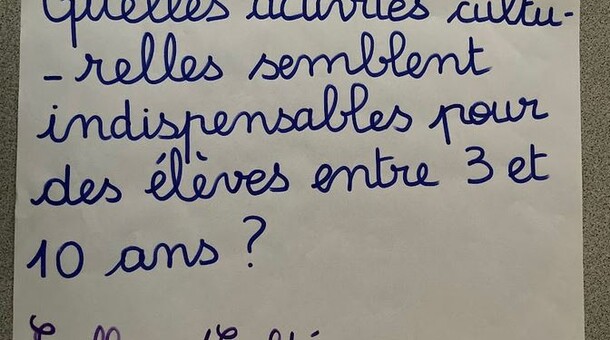 Quelles activités cultu-
-relles semblent
indispensables pour
des élèves entre 3 et
10 ans ?